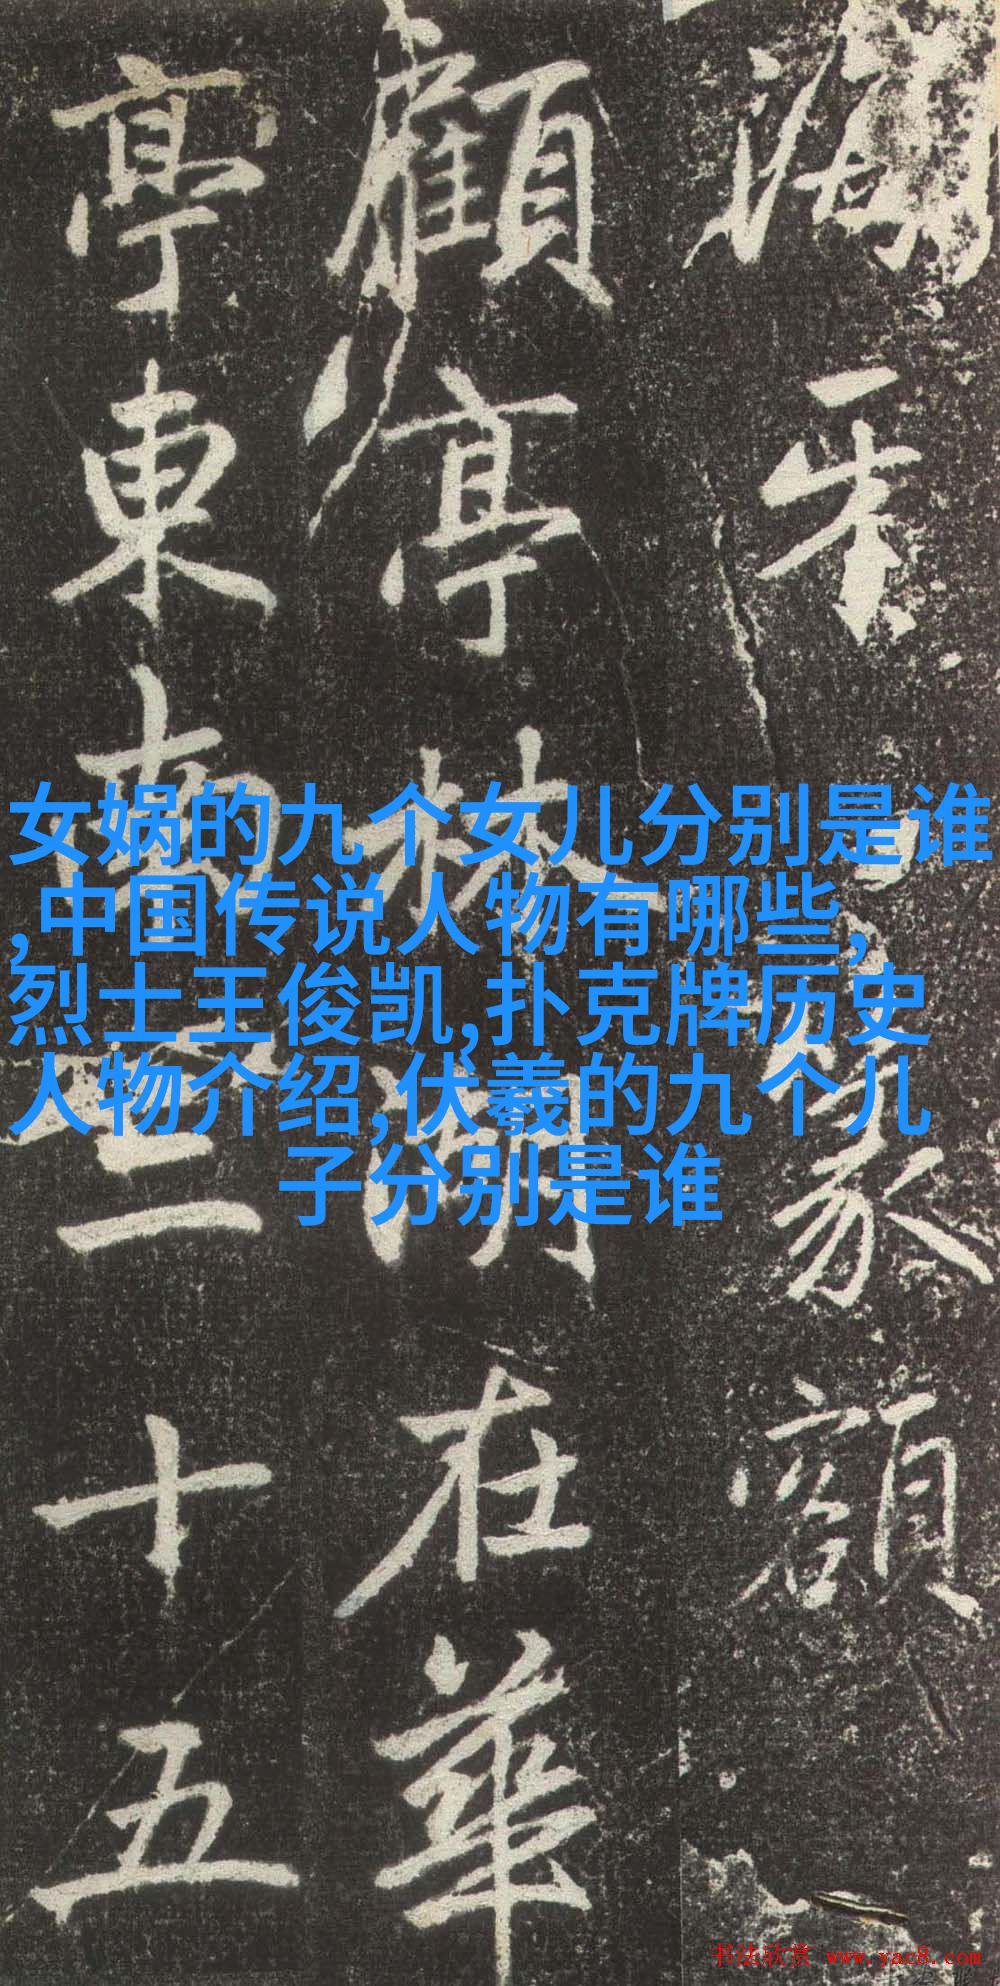 篆額
顧亭林湖在華
亭東南三十五
女娲的九个女儿分别是谁
,中国传说人物有哪些,
烈士王俊凯,扑克牌历史
人物介绍,伏羲的九个儿
子分别是谁
书法欣赏 www.yac8.com